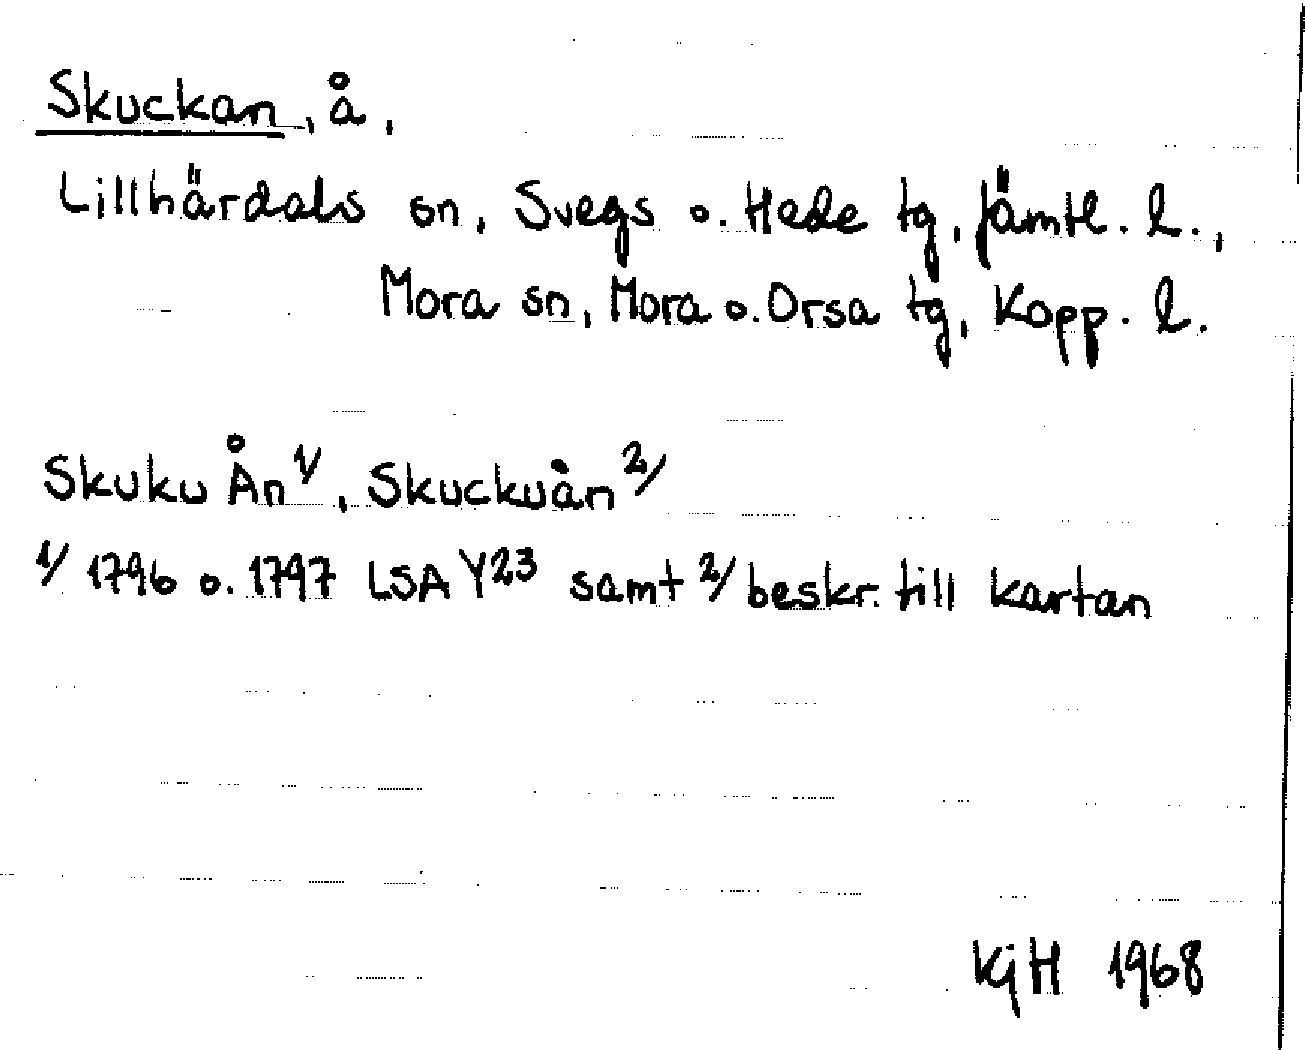 Skuckan, å,
Lillhärdals sn, Svegs o. Hede tg, Jämtl. l.,
Mora sn, Mora o. Orsa tg, Kopp. l.
Skuku Ån 1/, Skuckuån 2/
1/ 1796 o. 1797 LSA Y23 samt 2/ beskr. till kartan
KGH 1968